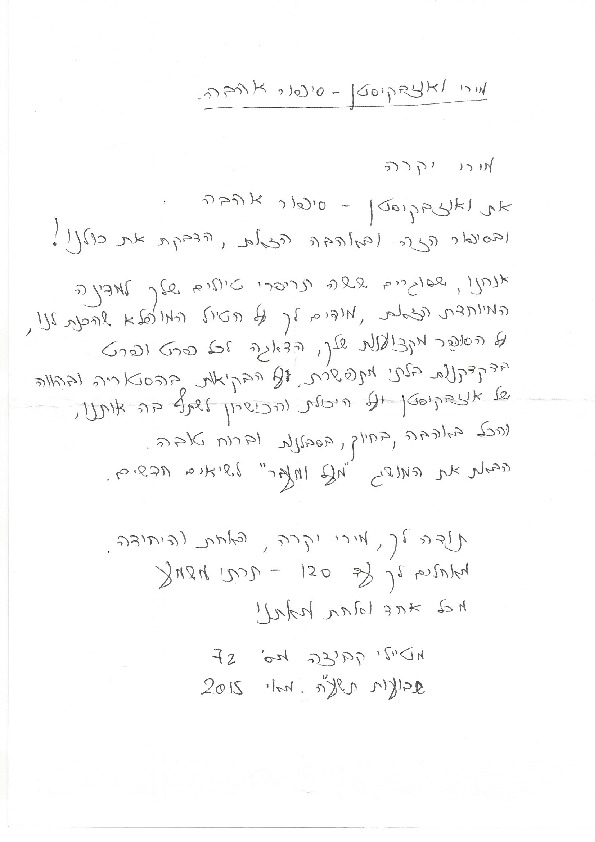 מירי ואוזבקיסטן - סיפור אהבה.
מירי יקרה
את ואוזבקיסטן - סיפור אהבה.
ובסיפור הזה ובאהבה הזאת, הדבקת את כולנו!
אנחנו, שסוגרים ששה תריסרי טיולים שלך למדינה
המיוחדת הזאת, מודים לך על הטיול המופלא שהכנת לנו,
על הסופר מקצוענות שלך, הדאגה לכל פרט ופרט
בדקדקנות בלתי מתפשרת, על הבקיאות בהסטוריה ובהווה
של אוזבקיסטן ועל היכולת והכישרון לשתף בה אותנו,
והכל באהבה, בחיוך, בסבלנות וברוח טובה.
הבאת את המושג "מעל ומעבר" לשיאים חדשים.
תודה לך, מירי יקרה, האחת והיחידה.
מאחלים לך עד 120 - תרתי משמע
מכל אחד ואחת מאתנו!
מטיילי קבוצה מס' 72
שבועות תשע"ה. מאי 2015